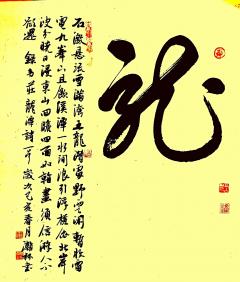 龍
石激悬流雪满湾五龍潛處野雲闲暫收雷
電九峯下且飲溪潭一水间浪引浮槎依北岸
波分曉日浸東山回瞻四面如看畫須信游人不
欲還 錄韋莊龍潭詩一首 歲次己亥春月